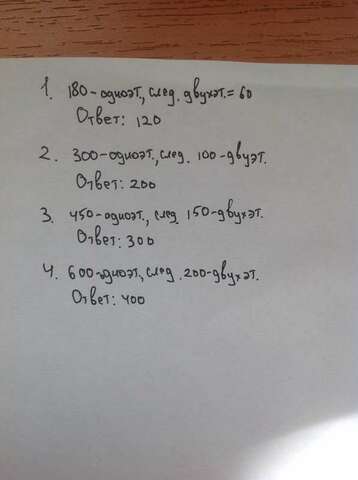 1. 180-одноэт., след. двухэт. = 60
Ответ: 120
2. 300-одноэт., след. 100-двуэт.
Ответ: 200
3. 450-одноэт., след. 150-двухэт.
Ответ: 300
4. 600-одноэт., след. 200-двухэт.
Ответ: 400